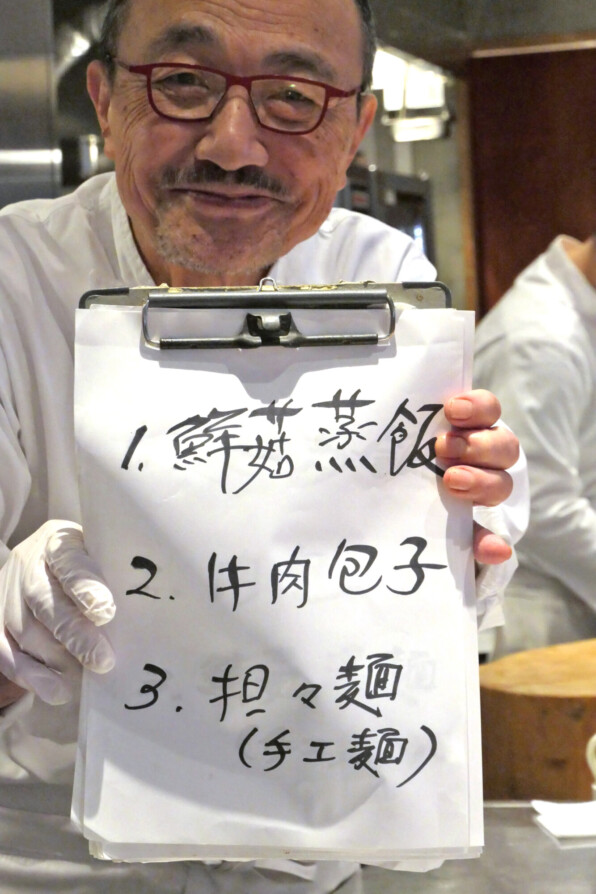 1. 鮮菇蒸飯
2. 牛肉包子
3. 担々麺
(手工麺)